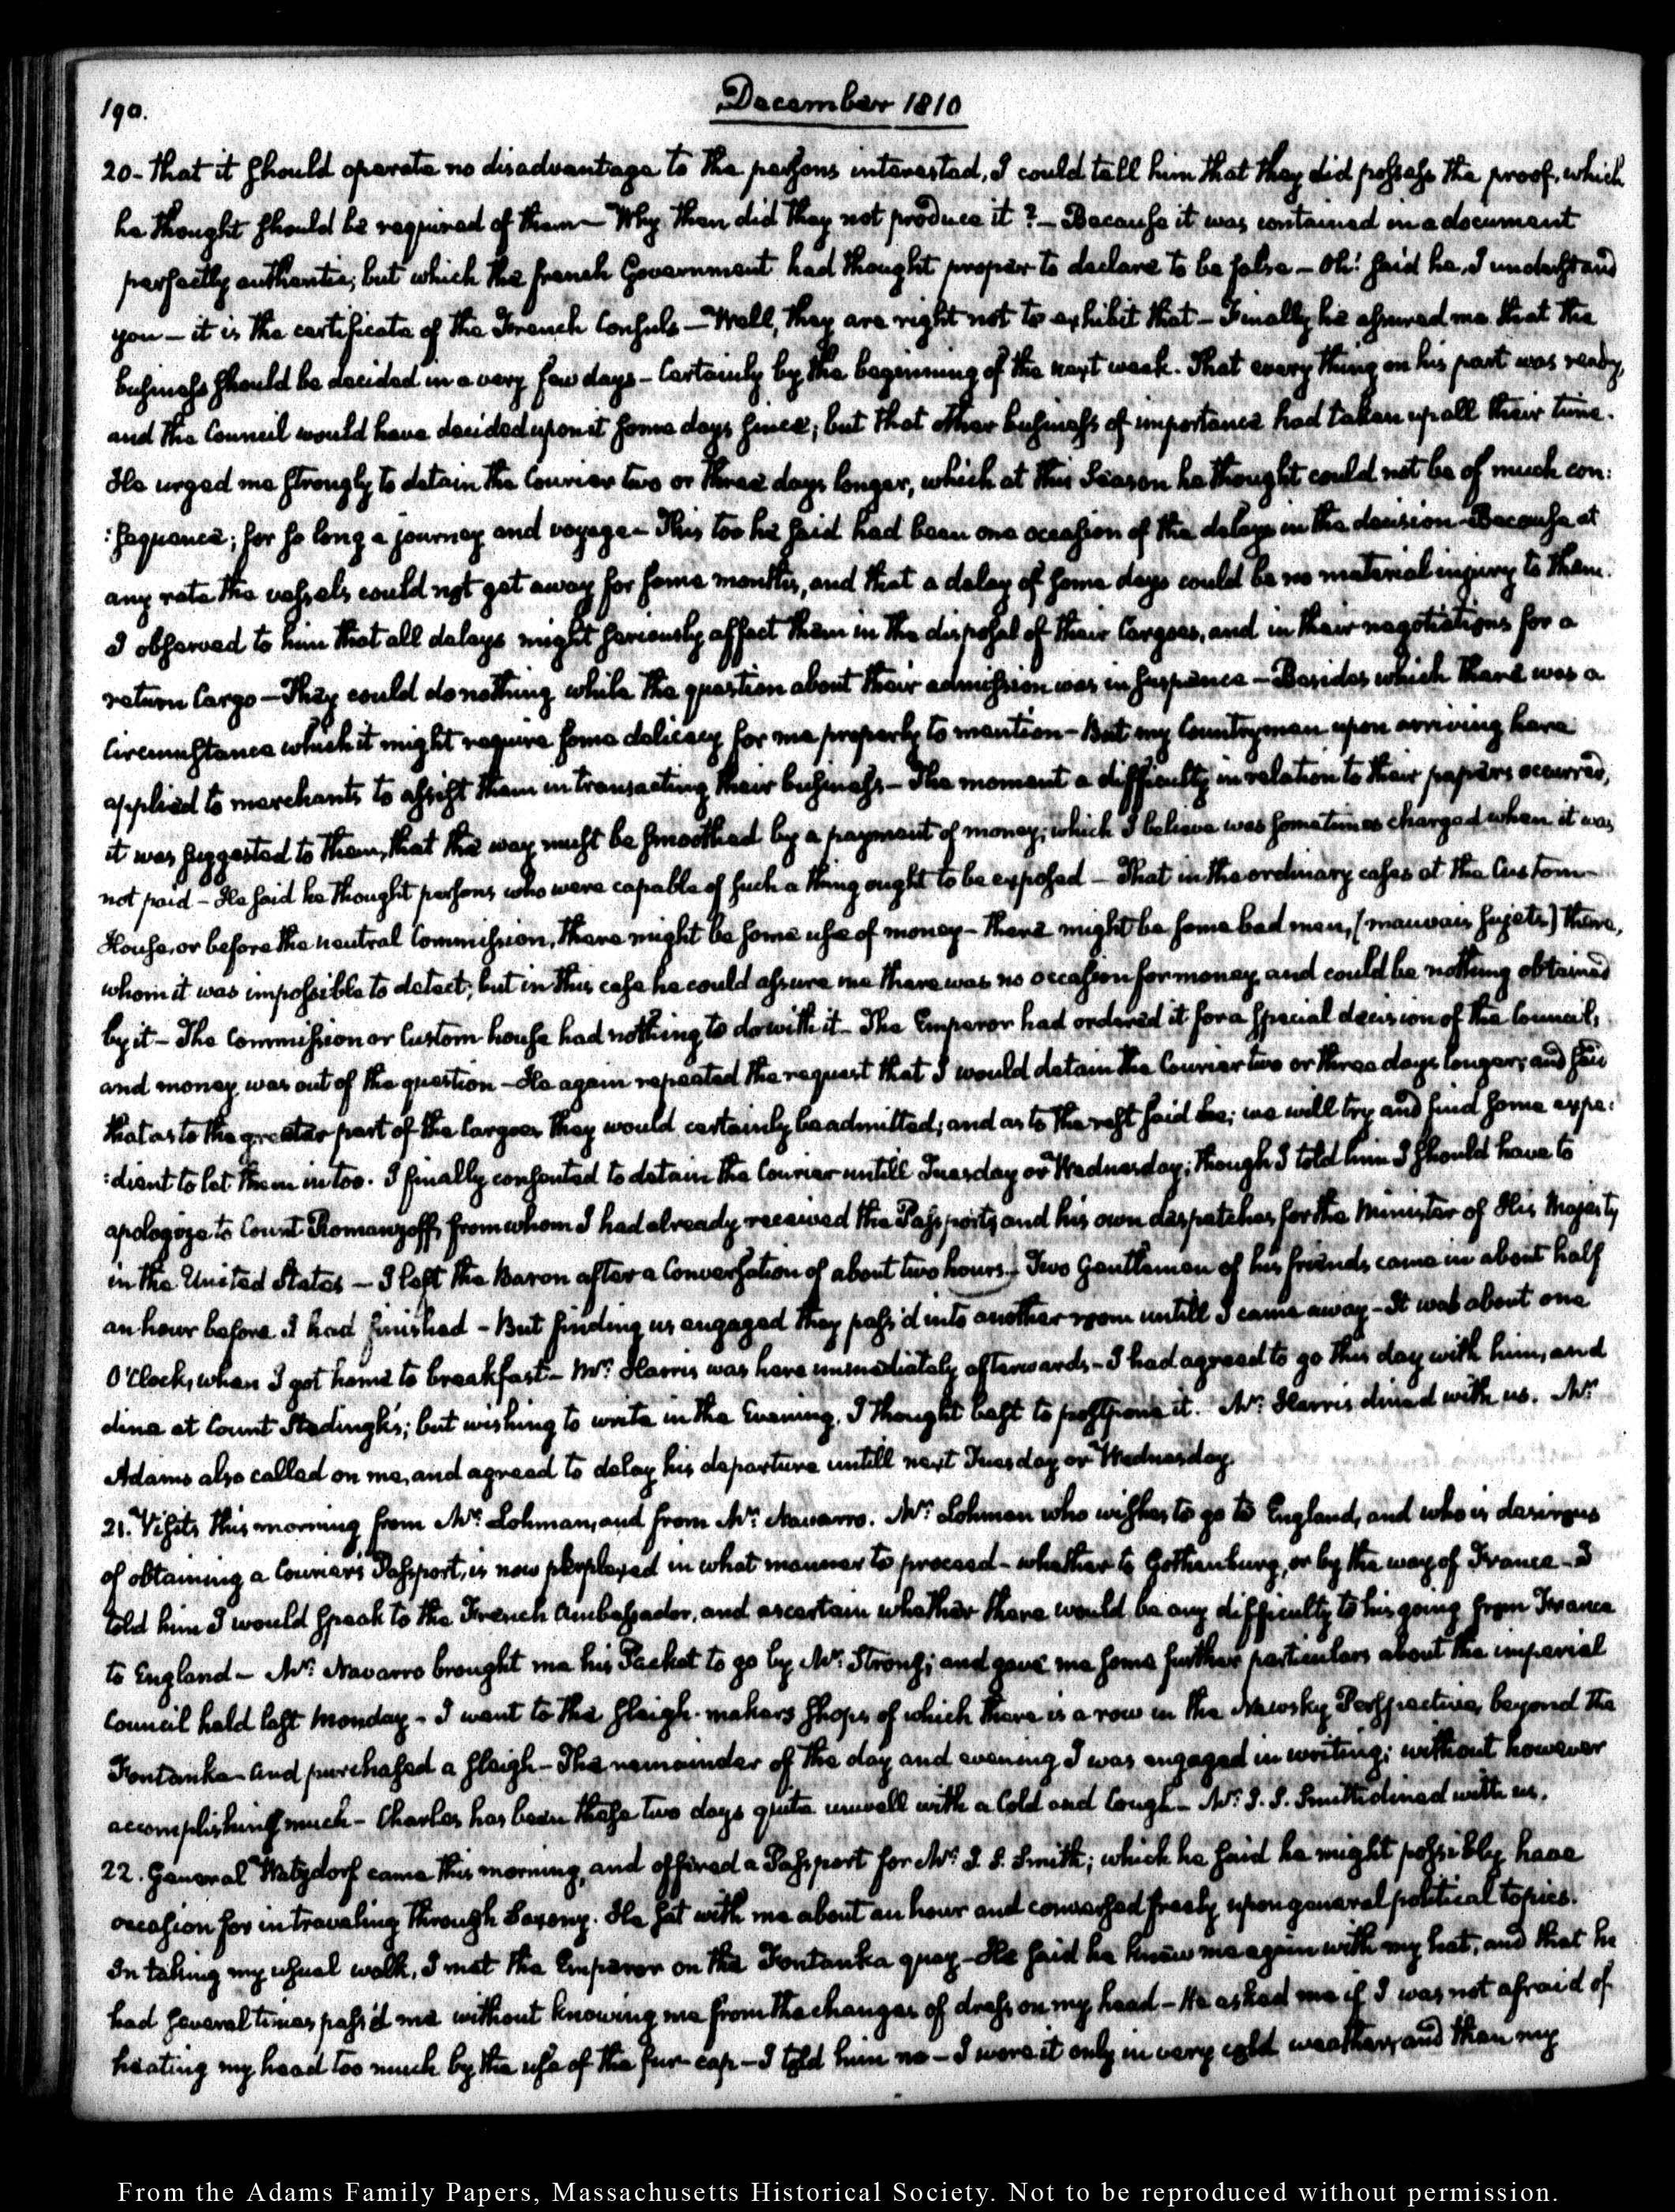 190.
December 1810
20- that it should operate no disadvantage to the persons interested, I could tell him that they did possess the proof, which
he thought should be required of them— Why then did they not produce it?— Because it was contained in a document
perfectly authentic; but which the french Government had thought proper to declare to be false— Oh! said he, I understand
you— it is the certificate of the French Consuls— Well, they are right not to exhibit that— Finally he assured me that the
business should be decided in a very few days— Certainly by the beginning of the next week. That every thing on his part was ready,
and the Council would have decided upon it some days since; but that other business of importance had taken up all their time.
He urged me strongly to detain the Courier two or three days longer, which at this Season he thought could not be of much con:
:sequence; for so long a journey and voyage— This too he said had been one occasion of the delays in the decision— Because at
any rate the vessels could not get away for some months, and that a delay of some days could be no material injury to them.
I observed to him that all delays might seriously affect them in the disposal of their Cargoes, and in their negotiations for a
return Cargo— They could do nothing while the question about their admission was in suspence— Besides which there was a
Circumstance which it might require some delicacy for me properly to mention— But my Countrymen upon arriving here
applied to merchants to assist them in transacting their business— The moment a difficulty in relation to their papers occurred,
it was suggested to them, that the way must be smoothed by a payment of money; which I believe was sometimes charged when it was
not paid— He said he thought persons who were capable of such a thing ought to be exposed— That in the ordinary cases at the Custom-
House, or before the neutral Commission, there might be some use of money— there might be some bad men, (mauvais sujets) there,
whom it was impossible to detect; but in this case he could assure me there was no occasion for money, and could be nothing obtained
by it— The Commission or Custom house had nothing to do with it— The Emperor had ordered it for a special decision of the Council,
and money was out of the question— He again repeated the request that I would detain the Courier two or three days longer; and said
that as to the greater part of the Cargoes they would certainly be admitted; and as to the rest said he; we will try and find some expe:
:dient to let them in too. I finally consented to detain the Courier untill Tuesday or Wednesday; though I told him I should have to
apologize to Count Romanzoff, from whom I had already received the Passports, and his own dispatches for the Minister of His Majesty
in the United States— I left the Baron after a Conversation of about two hours. Two Gentlemen of his friends came in about half
an hour before I had finished— But finding us engaged they pass'd into another room untill I came away— It was about one
O'Clock, when I got home to breakfast— Mr: Harris was here immediately afterwards— I had agreed to go this day with him, and
dine at Count Stedingk's; but wishing to write in the Evening, I thought best to postpone it. Mr: Harris dined with us. Mr:
Adams also called on me, and agreed to delay his departure untill next Tuesday or Wednesday.
21. Visits this morning from Mr: Lohman, and from Mr: Navarro. Mr: Lohman who wishes to go to England, and who is desirous
of obtaining a Courier's Passport, is now perplexed in what manner to proceed— whether to Gothenburg, or by the way of France— I
told him I would speak to the French Ambassador, and ascertain whether there would be any difficulty to his going from France
to England— Mr: Navarro brought me his Packet to go by Mr: Strong; and gave me some further particulars about the imperial
Council held last Monday— I went to the sleigh-makers shops of which there is a row in the Newsky Perspective, beyond the
Fontanka— and purchased a sleigh— The remainder of the day and evening I was engaged in writing; without however
accomplishing much— Charles has been these two days quite unwell with a Cold and Cough— Mr: J. S. Smith dined with us.
22. General Watzdorf came this morning, and offered a Passport for Mr: J. S. Smith; which he said he might possibly have
occasion for in traveling through Saxony. He sat with me about an hour and conversed freely upon general political topics.
In taking my usual walk, I met the Emperor on the Fontanka quay— He said he knew me again with my hat, and that he
had several times pass'd me without knowing me from the changes of dress on my head— He asked me if I was not afraid of
heating my head too much by the use of the fur-cap— I told him no— I wore it only in very cold weather, and then my
From the Adams Family Papers, Massachusetts Historical Society. Not to be reproduced without permission.